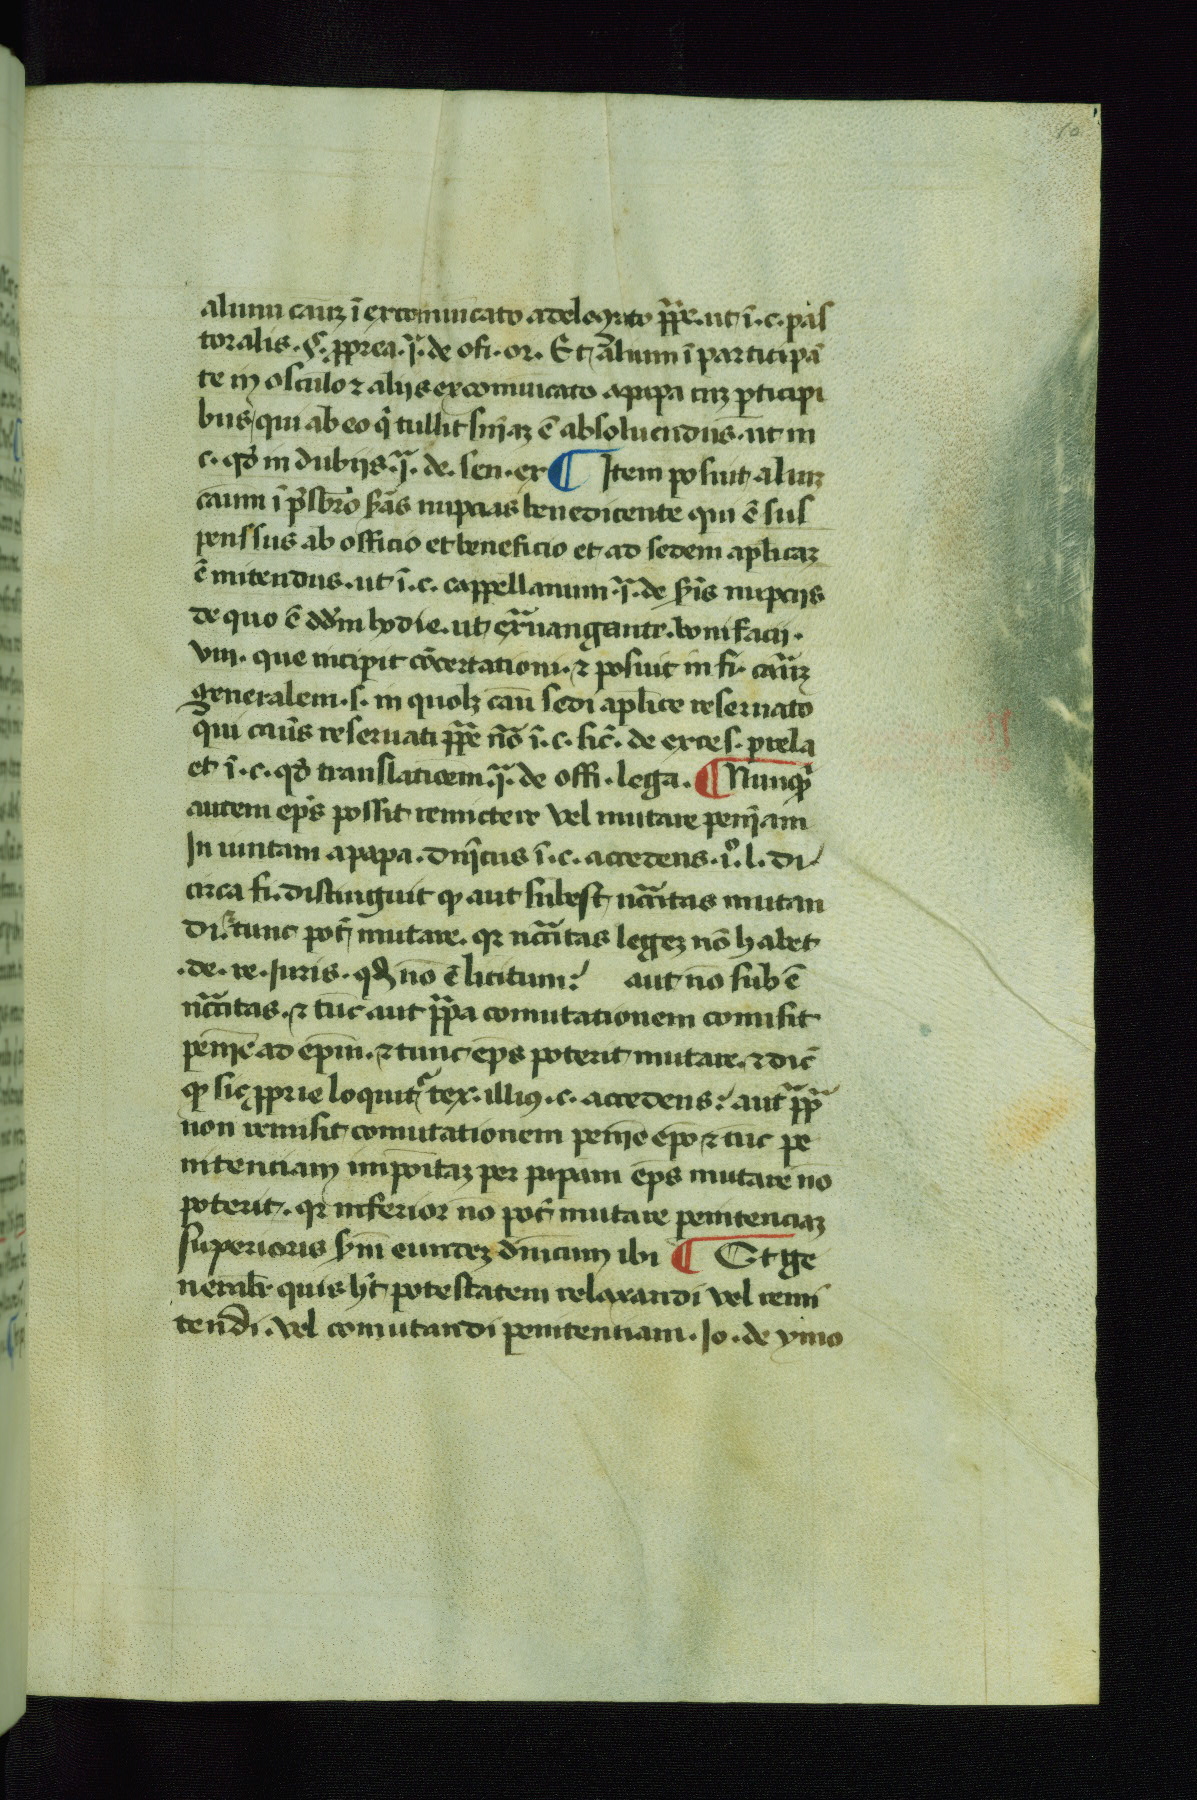 alium cauz ī excomunicato a delegato pp̄e. ut ī. c. pas
toralis. §. pp̄rea. ī. de ofi. or. Et alium ī participā
te in osculo ⁊ alijs excomunicato a papa cuz pticipi
bus, qui ab eo q̄ tullit sn̄iaz ē absoluendus. ut in
c. qd̄ in dubijs. ī. de. sen. ex ¶ Item posuit aliuz
casum ī p̄sbr̄o scd̄as nupcias benedicente qui ē sus
penssus ab officio et beneficio et ad sedem aplicaz
ē mitendus. ut ī. c. cappellanum. ī. de scd̄is nupcijs
de quo ē dd̄m hodie. ut ex̄uangante. bonifacii.
viii. que incipit cōcertationi. ⁊ posuit in fi. cauz
generalem. s. in quolz cau sedi aplice reseruato
qui caus reseruati pp̄e nō ī. c. sic̄. de exces. prela
et ī. c. qd̄ translationem. ī. de offi. lega. ¶ Nunqd̄
autem ep̄s possit remictere vel mutare penīam
In iunctam a papa. dnīcus ī. c. accedens. ī. l. di
circa fi. distinguit qp aut subest nc̄c̄itas mutan
di. ⁊ tunc pot̄ mutare. qr nc̄c̄itas legez nō habet
.de. re. Iuris. qd̄ nō ē licitum: aut nō sub ē
nc̄c̄itas. ⁊ tūc aut pp̄a comutationem comisit
penīe ad ep̄m. ⁊ tunc ep̄s poterit mutare. ⁊ dic̄
qp sic pprie loquit̄ tex. illiꝰ. c. accedens: aut pp̄a
non remisit comutationem penīe epō ⁊ tūc pe
nitentiam impoītaz per papam ep̄s mutare nō
poterit. qr inferior nō pot̄ mutare penitenciaz
superioris scd̄m eundez dn̄icum ibi ¶ Et ge
neralr̄ quis ht̄ potestatem relaxandi vel remi
tendi. vel comutandi penitentiam. Io. de ymo